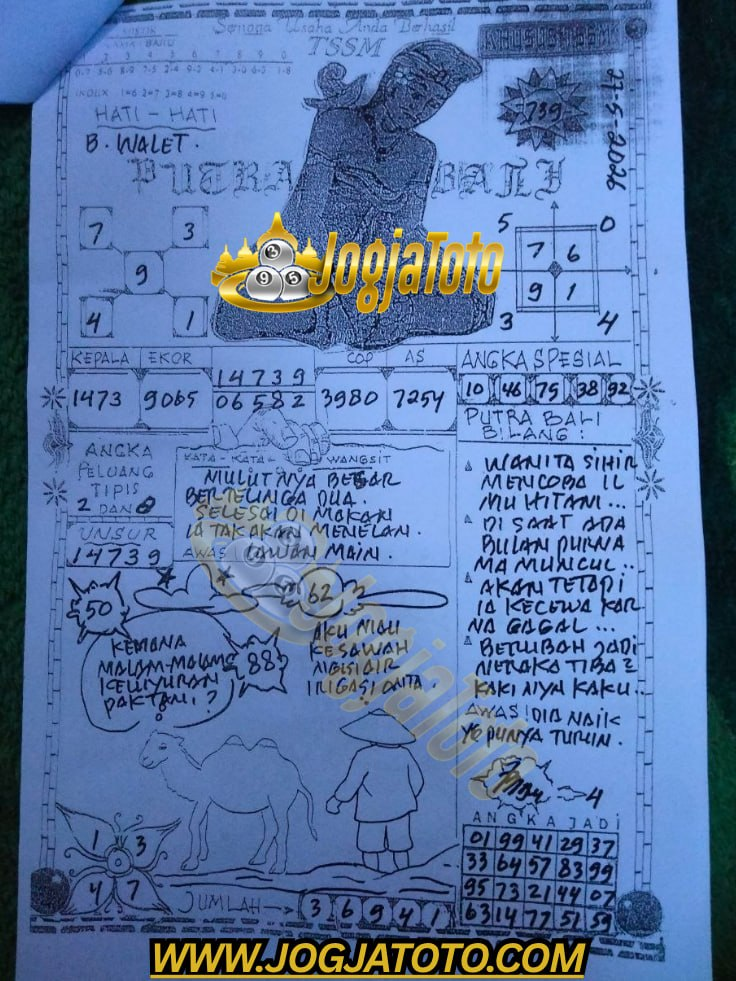 Semoga Usaha Anda Berhasil
TSSM
MISTIK
BARU
0 1 2 3 4 5 6 7 8 9 0
INDEX 1=6 2=7 3=8 4=9 5=0
HATI - HATI
B. WALET.
739
27-5-2026
PUTRA BALI
JogjaToto
7 3
9
4 1
5 0
7 6
9 1
3 4
KEPALA EKOR
1473 9065
14739
06582
COP AS
3980 7254
ANGKA SPESIAL
10 46 75 38 92
ANGKA
PELUANG
TIPIS
2 DAN 8
UNSUR
14739
KATA - KATA WANGSIT
MULUTNYA BESAR
BERTELINGA DUA.
SELESAI DI MAKAN
IA TAK AKAN MENELAN.
AWAS LAWAN MAIN.
PUTRA BALI
BILANG :
WANITA SIHIR
MENCOBA IL
MU HITAM...
DI SAAT ADA
BULAN PURNA
MA MUNCUL..
AKAN TETAPI
IA KECEWA KAR
NA GAGAL...
BERUBAH JADI
NERAKA TIBA2
KAKINYA KAKU..
AWAS! DIA NAIK
YG PUNYA TURUN.
50
62
88
KEMANA
MALAM-MALAM
KELUYURAN
PAKTANI,?
AKU MAU
KESAWAH
NGISI AIR
IRIGASI ONTA.
JogjaToto
4
ANGKA JADI
01 99 41 29 37
33 64 57 83 99
95 73 21 44 07
63 14 77 51 59
1 3
0
4 7
JUMLAH
3 6 9 4 1
WWW.JOGJATOTO.COM